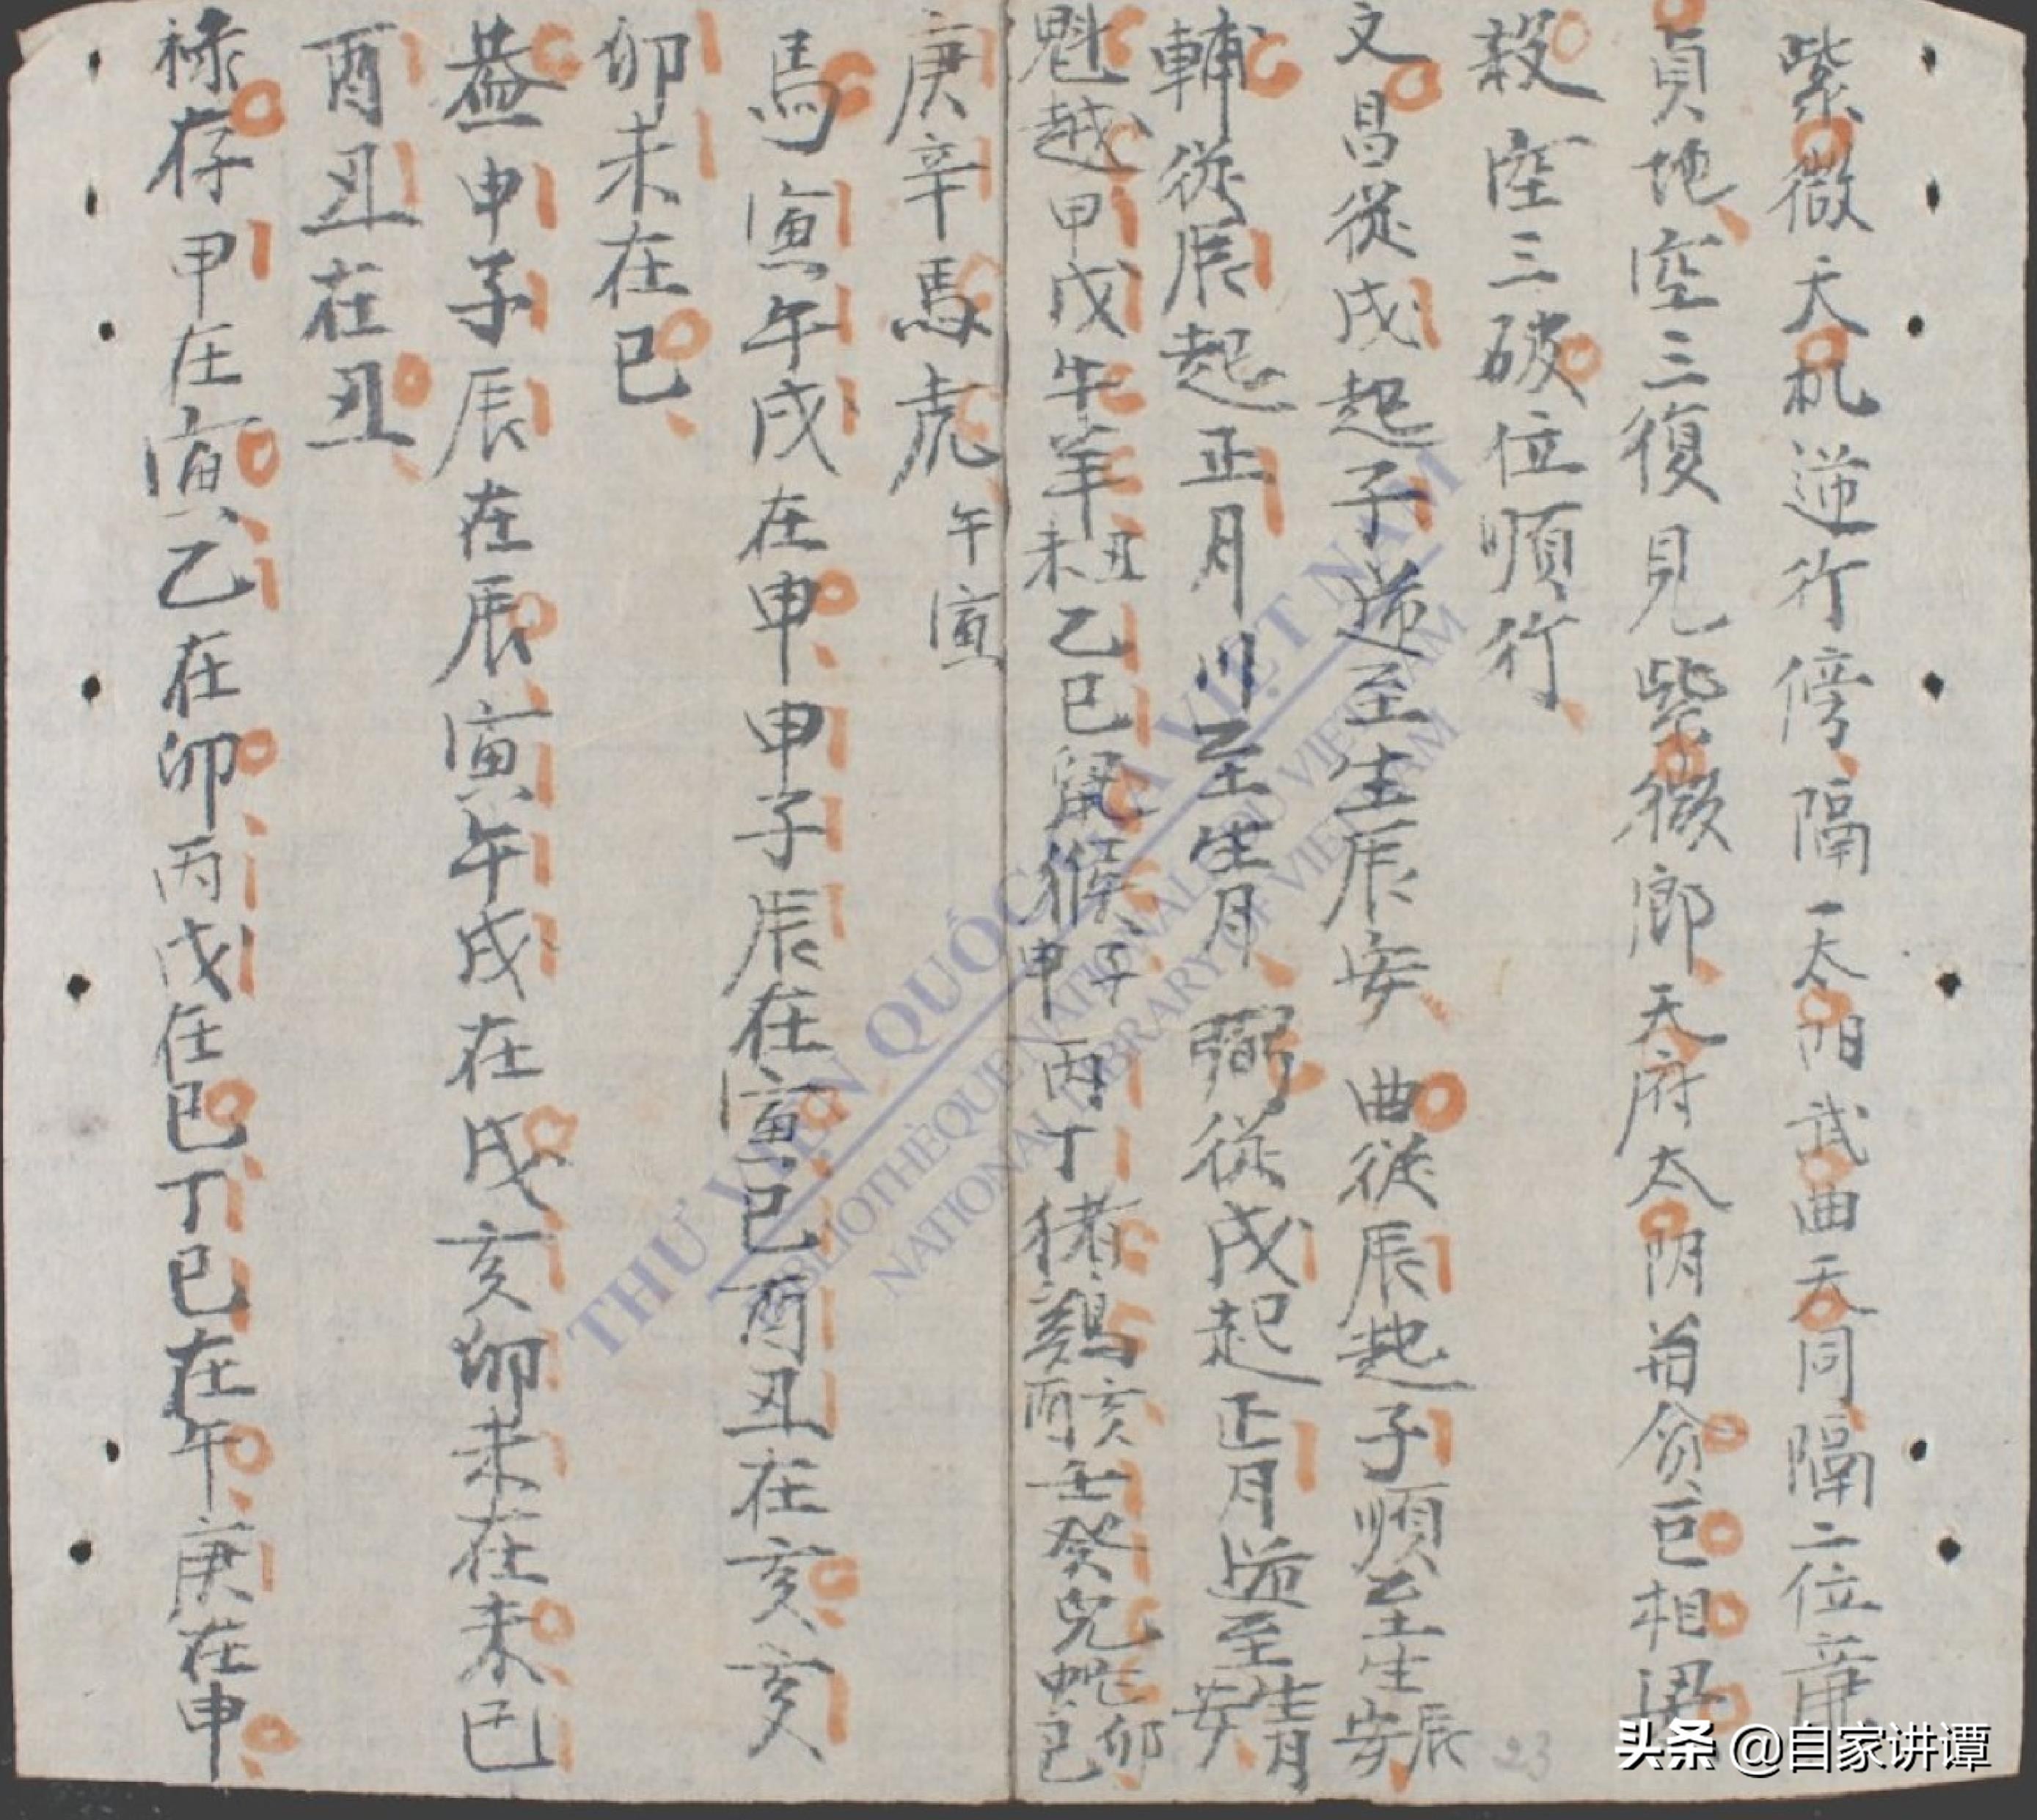 紫微天机逆行傍隔一太阳武曲天同隔二位㢘
貞地空三復見紫微郎天府太阴前贪巨相梁
殺空三破位順行
文昌從戌起子逆至生辰安曲從辰起子順至生辰安
輔從辰起正月川至生月弼從戌起正月逆至生月安
魁越甲戊牛羊丑未乙己鼠猴子申丙丁猪鷄亥酉壬癸兎蛇卯巳
庚辛馬虎午寅
馬寅午戌在申申子辰在寅巳酉丑在亥亥
卯未在巳
盖申子辰在辰寅午戌在戌亥卯未在未巳
酉丑在丑
禄存甲在寅乙在卯丙戊在巳丁己在午庚在申
THƯ VIỆN QUỐC GIA VIỆT NAM
BIBLIOTHÈQUE NATIONALE DU VIETNAM
NATIONAL LIBRARY OF VIETNAM
23
头条 @自家讲谭